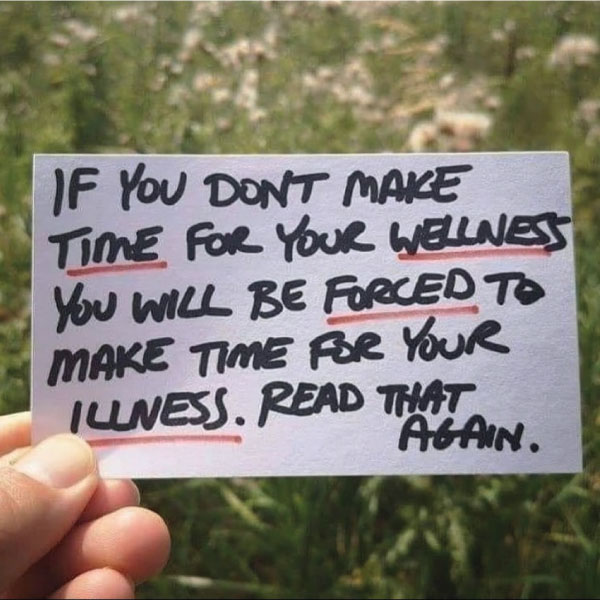 IF YOU DONT MAKE
TIME FOR YOUR WELLNESS
YOU WILL BE FORCED TO
MAKE TIME FOR YOUR
ILLNESS. READ THAT
AGAIN.